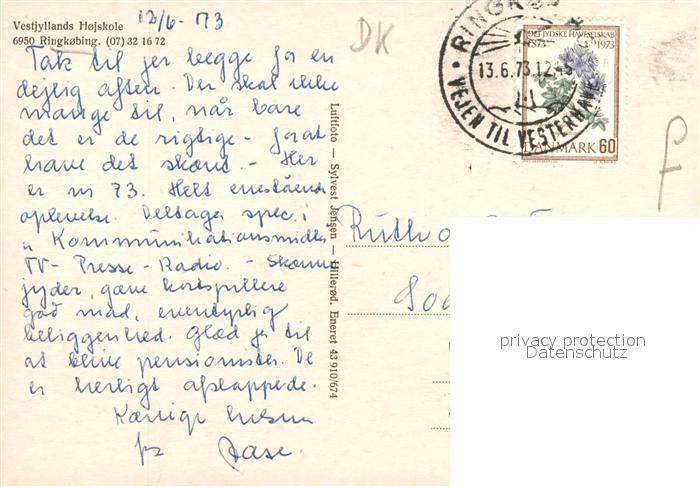 12/6 - 73
Vestjyllands Højskole
6950 Ringkøbing. (07) 32 16 72
DK
Tak til jer begge for en
dejlig aften. Der skal ikke
mange til, når bare
det er de rigtige - for at
have det skønt. - Her
er vi 73. Helt enestående
oplevelse. Deltager spec. i
" Kommunikationsmidler
TV - Presse - Radio. -
jyder, gæve kortspillere
god mad, eventyrlig
beliggenhed. Glæd jer til
at blive pensionister. De
er herligt afslappede.
Kærlige hilsner
fra Aase.
Luftfoto — Sylvest Jensen — Hillerød. Eneret 43 910/674
RINGKØ
13.6.73.12-45
VEJEN TIL VESTERHAVET
DET JYDSKE HAVESELSKAB
1873 1973
DANMARK 60
Ruth
privacy protection
Datenschutz